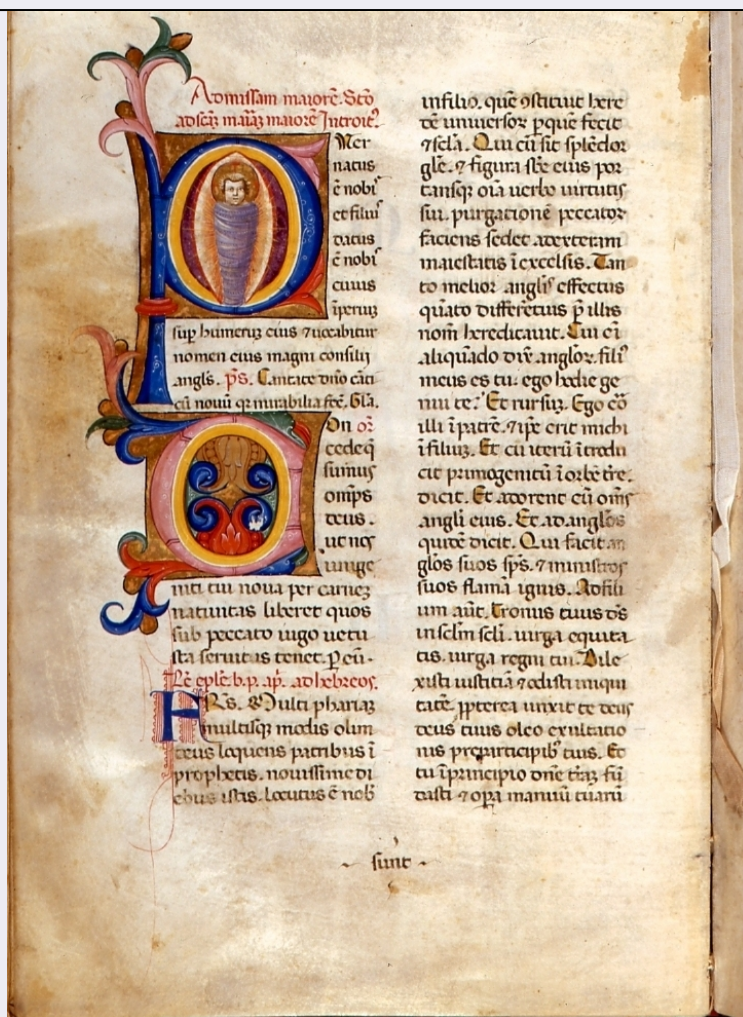 Ad missam maiorē. Stō
ad scāʒ mariāʒ maiorē Introit᷒.
PUer
natus
ē nobi᷒
et filiu᷒
datus
ē nobi᷒
cuius
īperiuʒ
sup̄ humeruʒ eius ⁊ uocabitur
nomen eius magni consilii
angl̄s. p̄s. Cantate dn̄o cāti
cū nouū qr mirabilia fec̄. Gl̄a.
COn or̄
cede q̄
sumus
omp̄s
deus.
ut nos
unige
niti tui noua per carneʒ
natiuitas liberet quos
sub peccato iugo uetu
sta seruitus tenet. P̲ eū.
Lc̄ epl̄e. b. p. ap̄. ad hebreos.
FRs̄. Multi phariaʒ
multisqʒ modis olim
deus loquens patribus ī
prophetis. nouissime di
ebus istis. locutus ē nob̄
in filio. quē ꝯstituit here
dē uniuersoꝝ p̲ quē fecit
⁊ scl̄a. Qui cū sit splēdor
gl̄e. ⁊ figura sb̄e eius por
tansqʒ oīa uerbo uirtutis
sui. purgationē peccatoꝝ
faciens sedet ad exteram
maiestatis ī excelsis. Tan
to melior angl̄is effectus
quāto differētius p̄ illis
nom̄ hereditauit. Cui ei
aliquādo dix̄ angloꝝ. fili᷒
meus es tu. ego hodie ge
nui te? Et rursuʒ. Ego eō
illi ī patrē. ⁊ ip̄e erit michi
ī filiuʒ. Et cū iterū ītrodu
cit primogenitū ī orbē tr̄e.
dicit. Et adorent eū om̄s
angli eius. Et ad anglos
quidē dicit. Qui facit an
glos suos sp̄s. ⁊ ministros
suos flamā ignis. Ad fili
um aūt. Tronus tuus d̄s
in sclm̄ scl̄i. uirga equita
tis. uirga regni tui. Dile
xisti iustitiā ⁊ odisti iniqui
tatē. ꝓpterea unxit te deus
deus tuus oleo exultatio
nis pre participib᷒ tuis. Et
tu ī principio dn̄e tr̄aʒ fū
dasti ⁊ oꝑa manuū tuarū
sunt